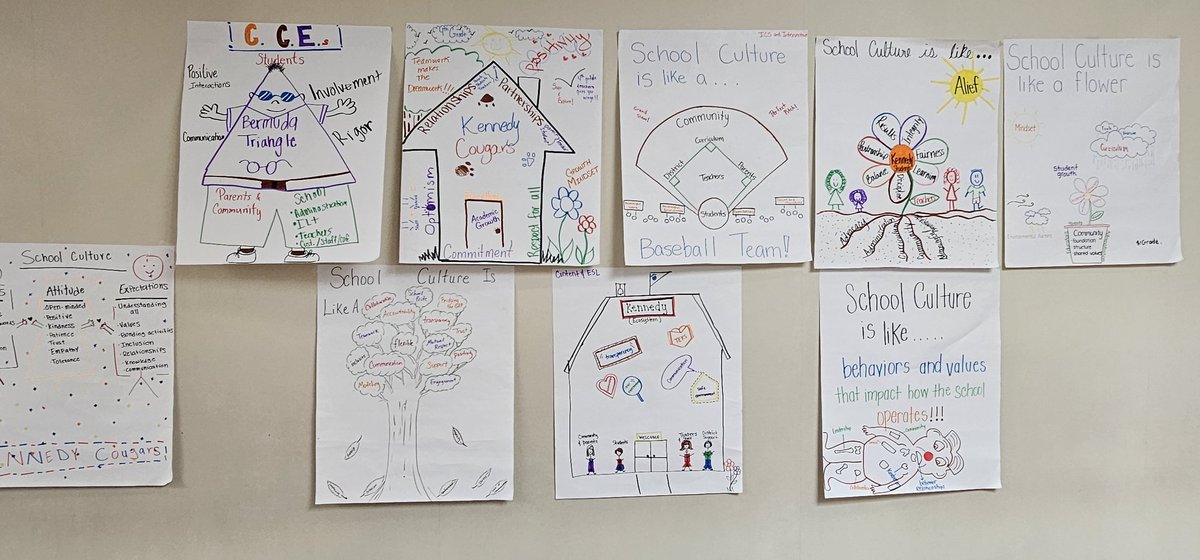 C. C. E.s
Students
Positive
Interactions
Involvement
Communication
Bermuda
Triangle
Rigor
Parents &
Community
School
Administration
ILT
Teachers
7th Grade
Positivity
Teamwork
makes the
Dreamwork!!!
Relationships
Partnerships
Kennedy
Cougars
Optimism
Academic
Growth
Growth
Mindset
Respect for all
Commitment
ICS and Intervention
School Culture
is like a...
Community
Curriculum
District
Parents
Teachers
Students
Baseball Team!
School Culture is like...
Alief
Results
Integrity
Partnership
Kennedy
Fairness
Balance
Learning
Discipline
Teachers
Administration
School Culture is
like a flower
Mindset
Curriculum
Student
growth
Environmental Factors
Community
foundation
structure
shared values
1st Grade
School Culture
Attitude
Open-minded
Positive
Kindness
Patience
Trust
Empathy
Tolerance
Expectations
Understanding
all
Values
Bonding activities
Inclusion
Relationships
Knowledge
Communication
NNEDY Cougars!
School Culture Is
Like A
Collaboration
School Pride
Accountability
Transparency
Teamwork
flexible
Mutual
Respect
Trust
Inclusive
Communication
Support
Positivity
Modeling
Engagement
Content & ESL
Kennedy
(Ecosystem)
transparency
TEKS
Communication
Safe
environment
Community
& parents
Students
WELCOME
Teachers
Staff
District
Support
School Culture
is like.....
behaviors and values
that impact how the school
operates!!!
Leadership
Community
Collaboration